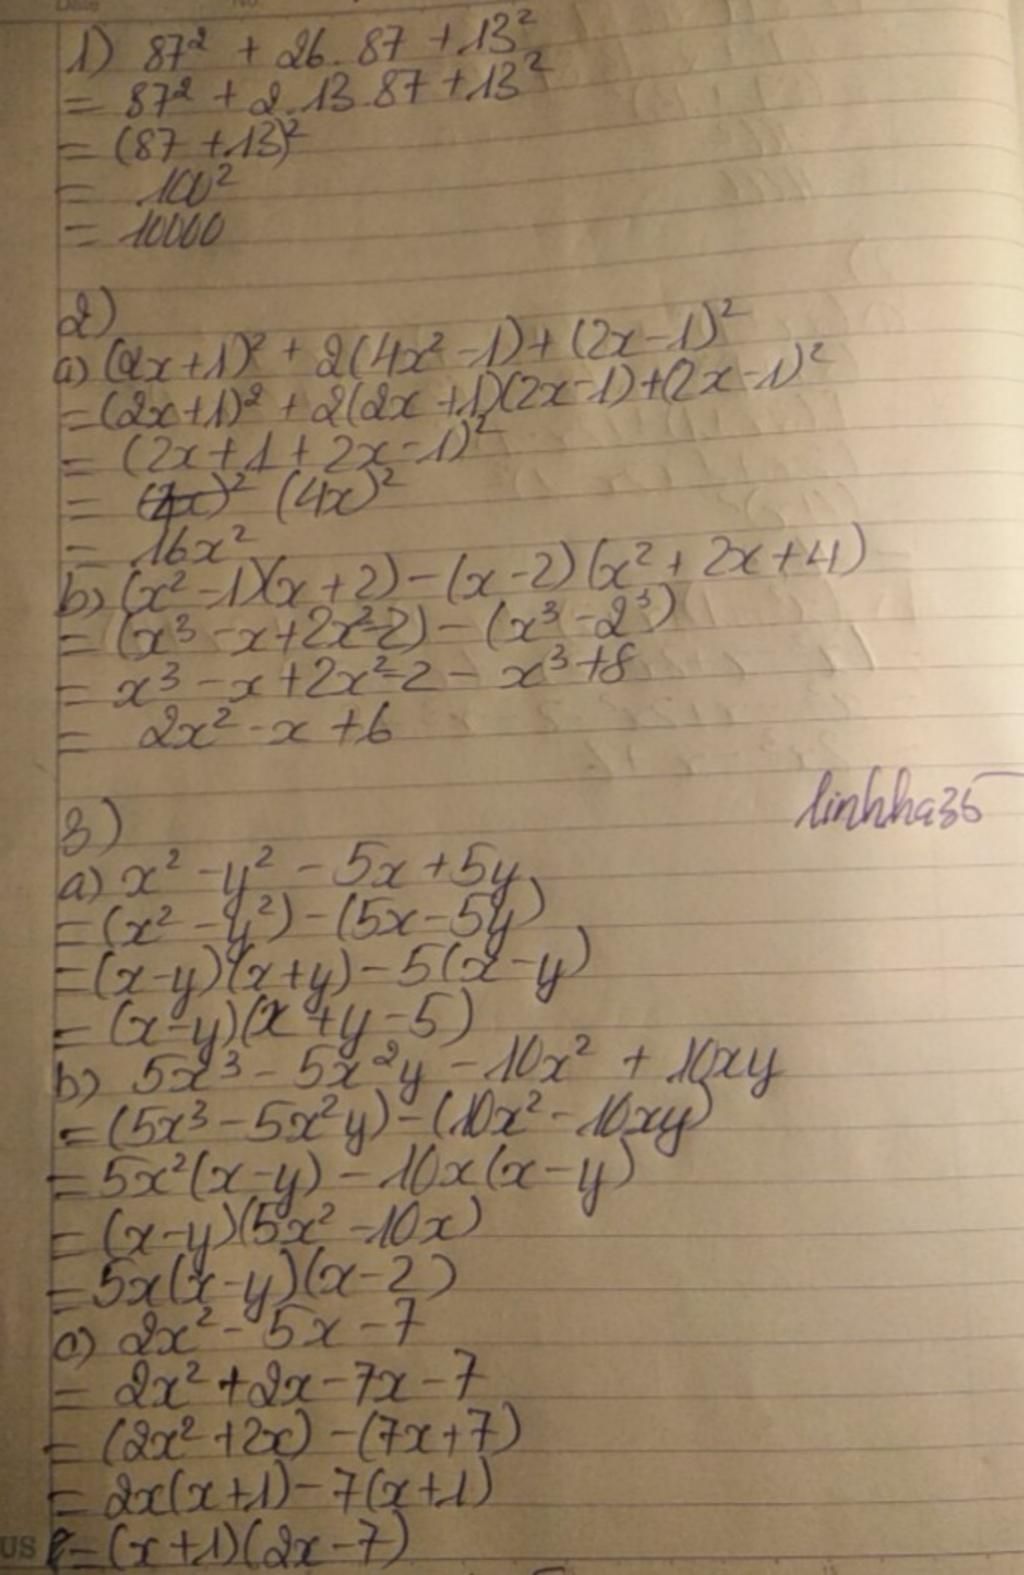 1) 87² + 26. 87 + 13²
= 87² + 2.13.87 + 13²
= (87 + 13)²
= 100²
= 10000
2)
a) (2x+1)² + 2(4x²-1) + (2x-1)²
= (2x+1)² + 2(2x+1)(2x-1)+(2x-1)²
= (2x+1+2x-1)²
= (4x)²
= 16x²
b) (x²-1)(x+2)-(x-2)(x²+2x+4)
= (x³-x+2x²-2)-(x³-2³)
= x³-x+2x²-2-x³+8
= 2x²-x+6
linhha35
3)
a) x²-y²-5x+5y
= (x²-y²)-(5x-5y)
= (x-y)(x+y)-5(x-y)
= (x-y)(x+y-5)
b) 5x³-5x²y-10x²+10xy
= (5x³-5x²y)-(10x²-10xy)
= 5x²(x-y)-10x(x-y)
= (x-y)(5x²-10x)
= 5x(x-y)(x-2)
c) 2x²-5x-7
= 2x²+2x-7x-7
= (2x²+2x)-(7x+7)
= 2x(x+1)-7(x+1)
= (x+1)(2x-7)
US